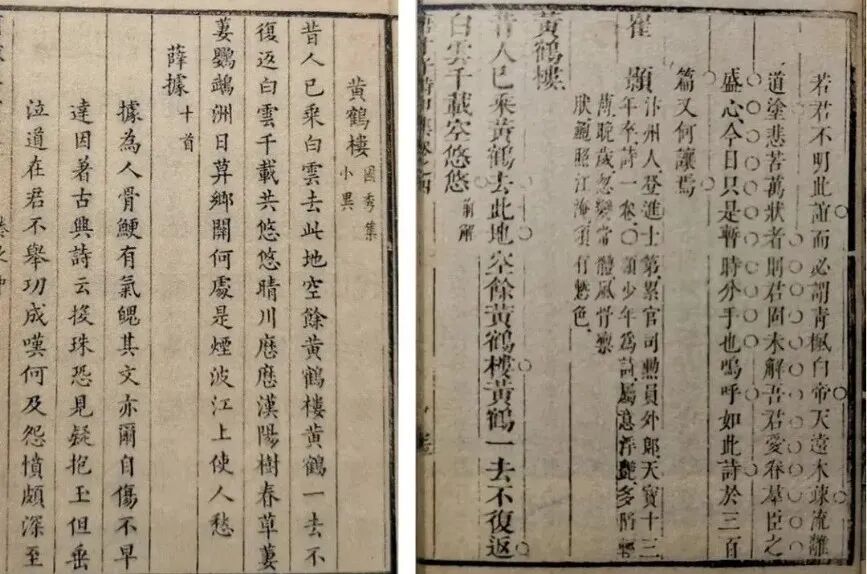 黃鶴樓
國秀集
小異
昔人已乘白雲去此地空餘黃鶴樓黃鶴一去不
復返白雲千載共悠悠晴川厯厯漢陽樹春草萋
萋鸚鵡洲日暮鄉關何處是煙波江上使人愁
薛據 十首
據為人骨鯁有氣魄其文亦爾自傷不早
達因著古興詩云投珠恐見疑抱玉但垂
泣道在君不舉功成嘆何及怨憤頗深至
若君不明此誼而必謂青楓白帝天遠木疎流離
道塗悲苦萬狀者則君固未解吾君愛吾羣臣之
盛心今日只是暫時分手也嗚呼如此詩於三百
篇又何讓焉
崔顥
汴州人登進士第累官司勳員外郎天寶十三
年卒詩一卷○顥少年為詩屬意浮艷多陷輕
薄晚歲忽變常體風骨凜
肰窺照江淹須有慙色
黃鶴樓
昔人已乘黃鶴去此地空餘黃鶴樓黃鶴一去不復返
白雲千載空悠悠 前解